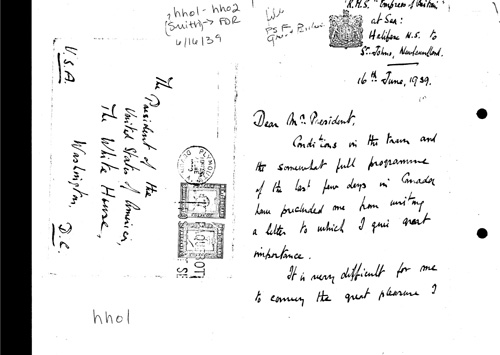 hh01 - hh02
(Smith) → FDR
6/14/39
PSF
R.M.S. "Empress of Britain"
at Sea:
Halifax N.S. to
St. Johns, Newfoundland.
16th June, 1939.
Dear Mr. President,
Conditions in the train and
the somewhat full programme
of the last few days in Canada
have precluded me from writing
a letter to which I give great
importance.
It is very difficult for me
to convey the great pleasure I
The President of the
United States of America,
The White House,
Washington, D.C.
U.S.A.
hh01